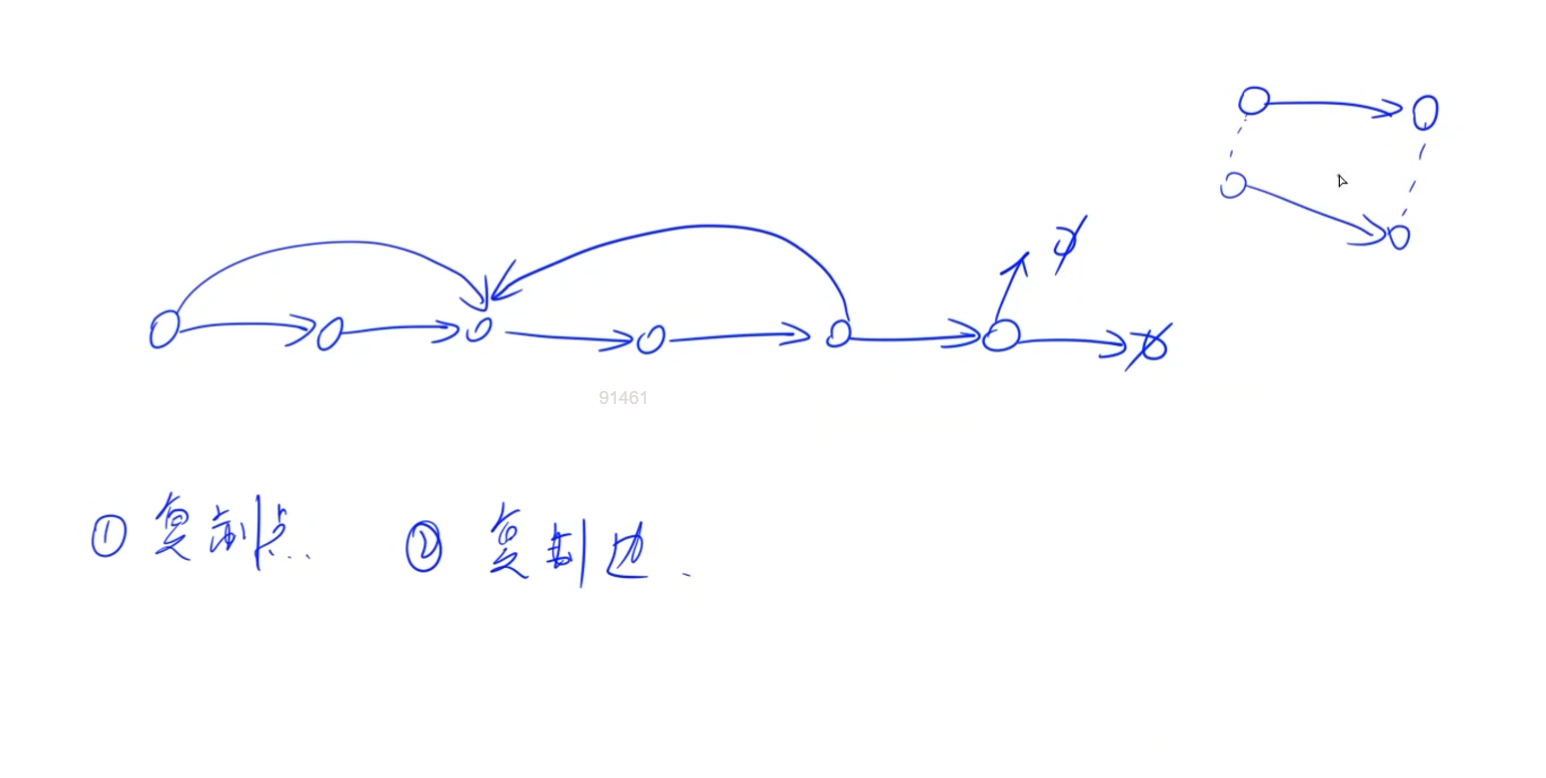 91461
① 复制点. ② 复制边.